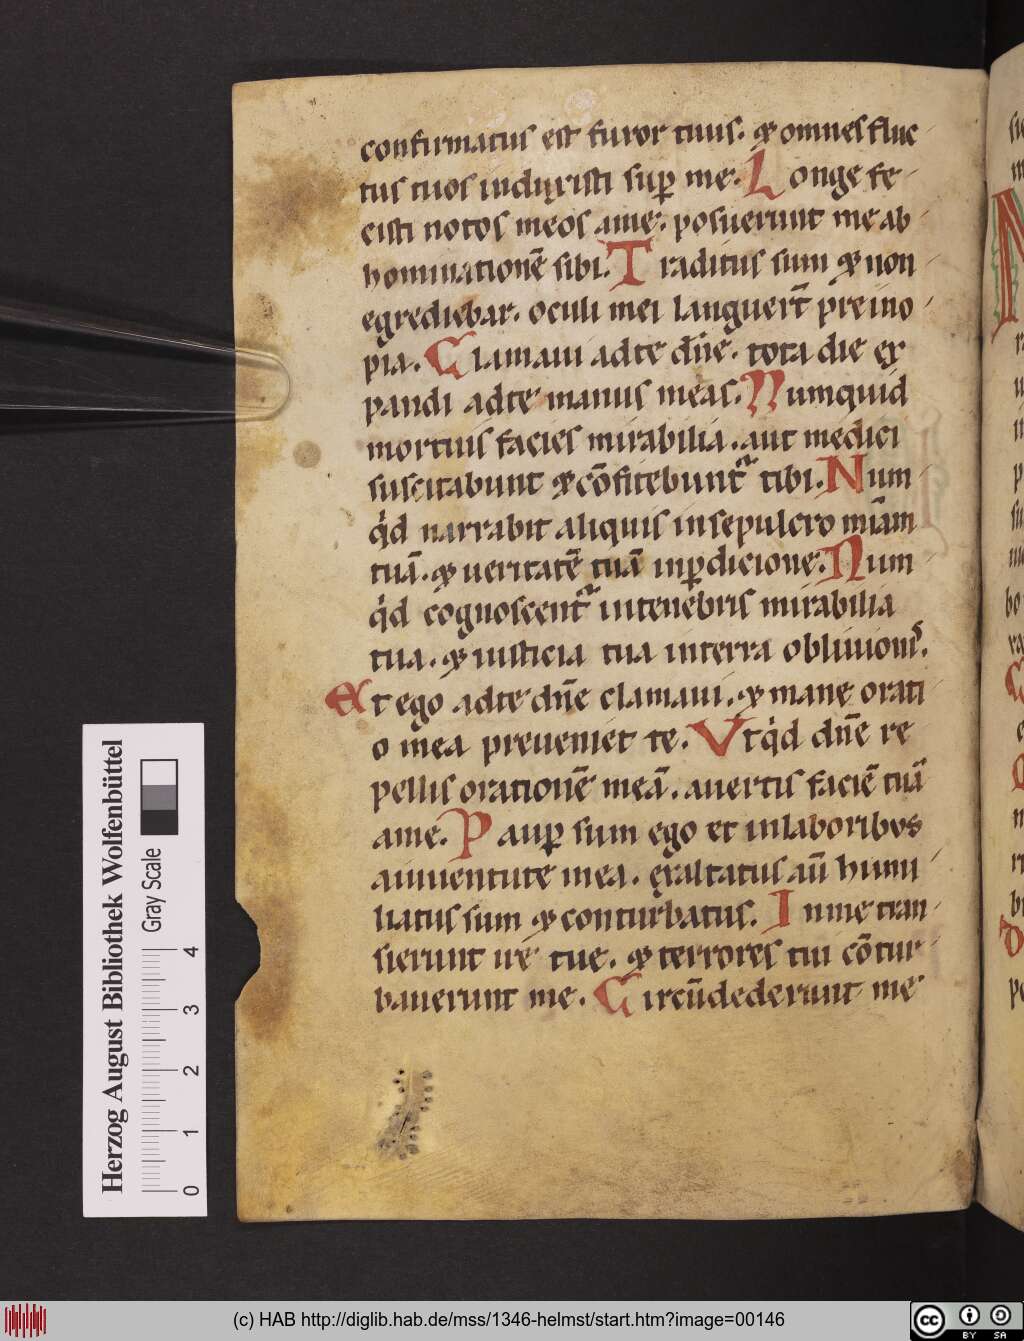 confirmatus est furor tuus. & omnes fluc
tus tuos induxisti sup̄ me. Longe fe
cisti notos meos ame. posuerunt me ab
hominationē sibi. Traditus sum & non
egrediebar. oculi mei languer̄t pre ino
pia. Clamaui adte dn̄e. tota die ex
pandi adte manus meas. Numquid
mortuis facies mirabilia. aut medici
suscitabunt & cōfitebunt᷑ tibi. Num
qͥd narrabit aliquis insepulcro miām
tuā. & ueritatē tuā inꝑdicione. Num
qͥd cognoscent᷑ intenebris mirabilia
tua. & iusticia tua interra obliuionis.
Et ego adte dn̄e clamaui. & mane orati
o mea preueniet te. Vtqͥd dn̄e re
pellis orationē meā. auertis faciē tuā
ame. Pauꝑ sum ego et inlaboribus
aiuuentute mea. exaltatus aū humi
liatus sum & conturbatus. Inme tran
sierunt ire tue. & terrores tui cōtur
bauerunt me. Circūdederunt me
Herzog August Bibliothek Wolfenbüttel
Gray Scale
0 1 2 3 4
(c) HAB http://diglib.hab.de/mss/1346-helmst/start.htm?image=00146
cc BY SA